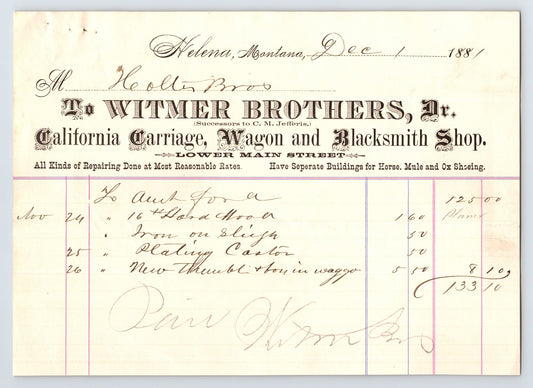 Helena, Montana, Dec 1 1881
M Holter Bros
To WITMER BROTHERS, Dr.
(Successors to C. M. Jefferis,)
California Carriage, Wagon and Blacksmith Shop.
LOWER MAIN STREET
All Kinds of Repairing Done at Most Reasonable Rates. Have Seperate Buildings for Horse, Mule and Ox Shoeing.
To 125 00
Nov 24 " 16 ft Hard Wood 1 60
" Iron on Sleigh 50
25 " Plating Castor 50
26 " New Thimbl & in waggo 5 50 8 10
133 10
Paid Witmer Bros